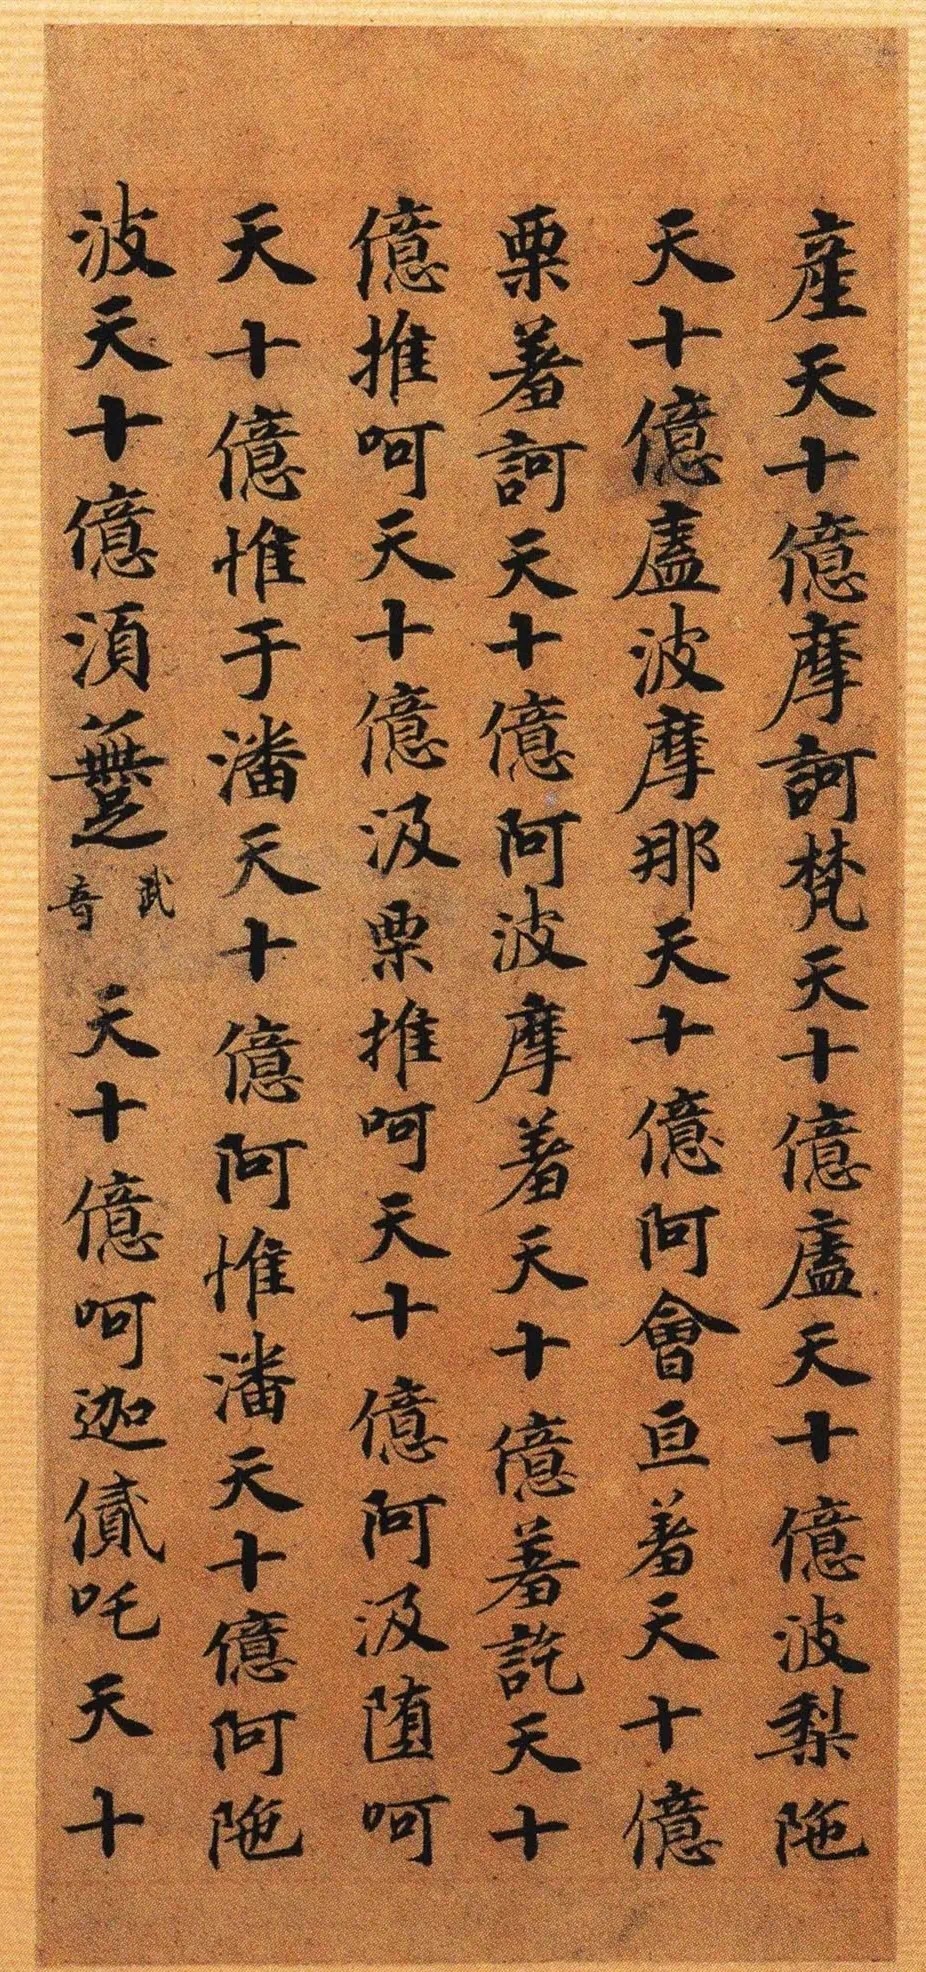 産天十億摩訶梵天十億廬天十億波梨陁
天十億廬波摩那天十億阿會亘著天十億
栗著訶天十億阿波摩著天十億著訖天十
億推呵天十億汲栗推呵天十億阿汲墮呵
天十億惟于潘天十億阿惟潘天十億阿陁
波天十億須躉武音天十億呵迦貳吒天十